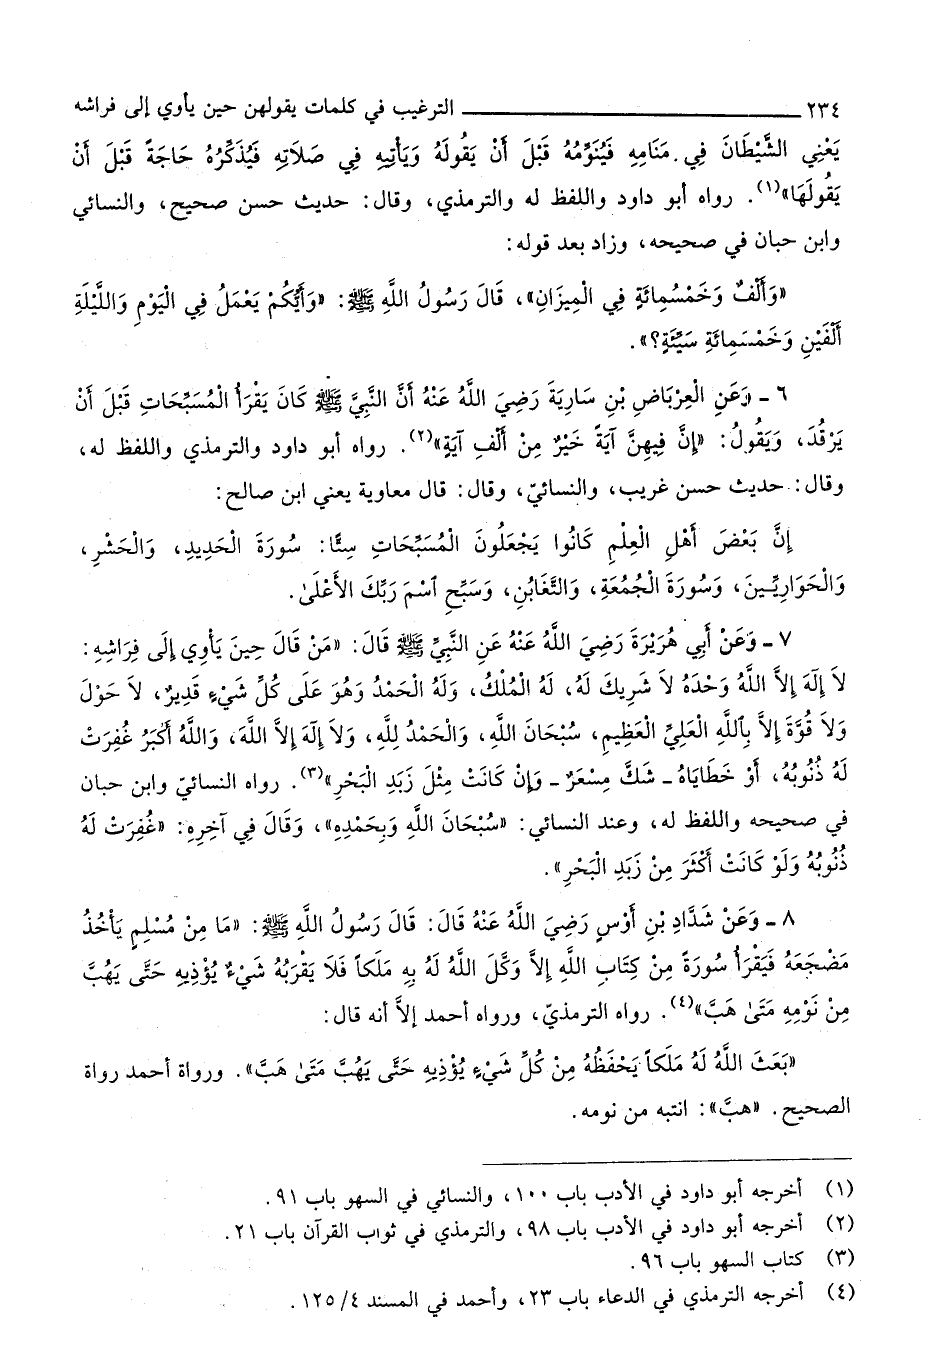 ٢٣٤ ـــــــــ الترغيب في كلمات يقولهن حين يأوي إلى فراشه
يَعْنِي الشَّيْطَانَ فِي مَنَامِهِ فَيُنَوِّمُهُ قَبْلَ أَنْ يَقُولَهُ وَيَأْتِيهِ فِي صَلَاتِهِ فَيُذَكِّرُهُ حَاجَةً قَبْلَ أَنْ
يَقُولَهَا»(١). رواه أبو داود واللفظ له والترمذي، وقال: حديث حسن صحيح، والنسائي
وابن حبان في صحيحه، وزاد بعد قوله:
«وَأَلْفٌ وَخَمْسُمِائَةٍ فِي الْمِيزَانِ»، قَالَ رَسُولُ اللَّهِ ﷺ: «وَأَيُّكُمْ يَعْمَلُ فِي الْيَوْمِ وَاللَّيْلَةِ
أَلْفَيْنِ وَخَمْسَمِائَةِ سَيِّئَةٍ؟».
٦ ـ وَعَنِ الْعِرْبَاضِ بْنِ سَارِيَةَ رَضِيَ اللَّهُ عَنْهُ أَنَّ النَّبِيَّ ﷺ كَانَ يَقْرَأُ الْمُسَبِّحَاتِ قَبْلَ أَنْ
يَرْقُدَ، وَيَقُولُ: «إِنَّ فِيهِنَّ آيَةً خَيْرٌ مِنْ أَلْفِ آيَةٍ»(٢). رواه أبو داود والترمذي واللفظ له،
وقال: حديث حسن غريب، والنسائيّ، وقال: قال معاوية يعني ابن صالح:
إِنَّ بَعْضَ أَهْلِ الْعِلْمِ كَانُوا يَجْعَلُونَ الْمُسَبِّحَاتِ سِتًّا: سُورَةَ الْحَدِيدِ، وَالْحَشْرِ،
وَالْحَوَارِيِّينَ، وَسُورَةَ الْجُمُعَةِ، وَالتَّغَابُنِ، وَسَبِّحِ ٱسْمَ رَبِّكَ الأَعْلَىٰ.
٧ ـ وَعَنْ أَبِي هُرَيْرَةَ رَضِيَ اللَّهُ عَنْهُ عَنِ النَّبِيِّ ﷺ قَالَ: «مَنْ قَالَ حِينَ يَأْوِي إِلَى فِرَاشِهِ:
لاَ إِلَهَ إِلاَّ اللَّهُ وَحْدَهُ لاَ شَرِيكَ لَهُ، لَهُ الْمُلْكُ، وَلَهُ الْحَمْدُ وَهُوَ عَلَى كُلِّ شَيْءٍ قَدِيرٌ، لاَ حَوْلَ
وَلاَ قُوَّةَ إِلاَّ بِٱللَّهِ الْعَلِيِّ الْعَظِيمِ، سُبْحَانَ اللَّهِ، وَالْحَمْدُ لِلَّهِ، وَلاَ إِلَهَ إِلاَّ اللَّهَ، وَاللَّهُ أَكْبَرُ غُفِرَتْ
لَهُ ذُنُوبُهُ، أَوْ خَطَايَاهُ ـ شَكَّ مِسْعَرٌ ـ وَإِنْ كَانَتْ مِثْلَ زَبَدِ الْبَحْرِ»(٣). رواه النسائيّ وابن حبان
في صحيحه واللفظ له، وعند النسائي: «سُبْحَانَ اللَّهِ وَبِحَمْدِهِ»، وَقَالَ فِي آخِرِهِ: «غُفِرَتْ لَهُ
ذُنُوبُهُ وَلَوْ كَانَتْ أَكْثَرَ مِنْ زَبَدِ الْبَحْرِ».
٨ ـ وَعَنْ شَدَّادِ بْنِ أَوْسٍ رَضِيَ اللَّهُ عَنْهُ قَالَ: قَالَ رَسُولُ اللَّهِ ﷺ: «مَا مِنْ مُسْلِمٍ يَأْخُذُ
مَضْجَعَهُ فَيَقْرَأُ سُورَةً مِنْ كِتَابِ اللَّهِ إِلاَّ وَكَّلَ اللَّهُ لَهُ بِهِ مَلَكاً فَلاَ يَقْرَبُهُ شَيْءٌ يُؤْذِيهِ حَتَّى يَهُبَّ
مِنْ نَوْمِهِ مَتَىٰ هَبَّ»(٤). رواه الترمذيّ، ورواه أحمد إلاَّ أنه قال:
«بَعَثَ اللَّهُ لَهُ مَلَكاً يَحْفَظُهُ مِنْ كُلِّ شَيْءٍ يُؤْذِيهِ حَتَّى يَهُبَّ مَتَىٰ هَبَّ». ورواة أحمد رواة
الصحيح. «هبَّ»: انتبه من نومه.
(١) أخرجه أبو داود في الأدب باب ١٠٠، والنسائي في السهو باب ٩١.
(٢) أخرجه أبو داود في الأدب باب ٩٨، والترمذي في ثواب القرآن باب ٢١.
(٣) كتاب السهو باب ٩٦.
(٤) أخرجه الترمذي في الدعاء باب ٢٣، وأحمد في المسند ٤/ ١٢٥.